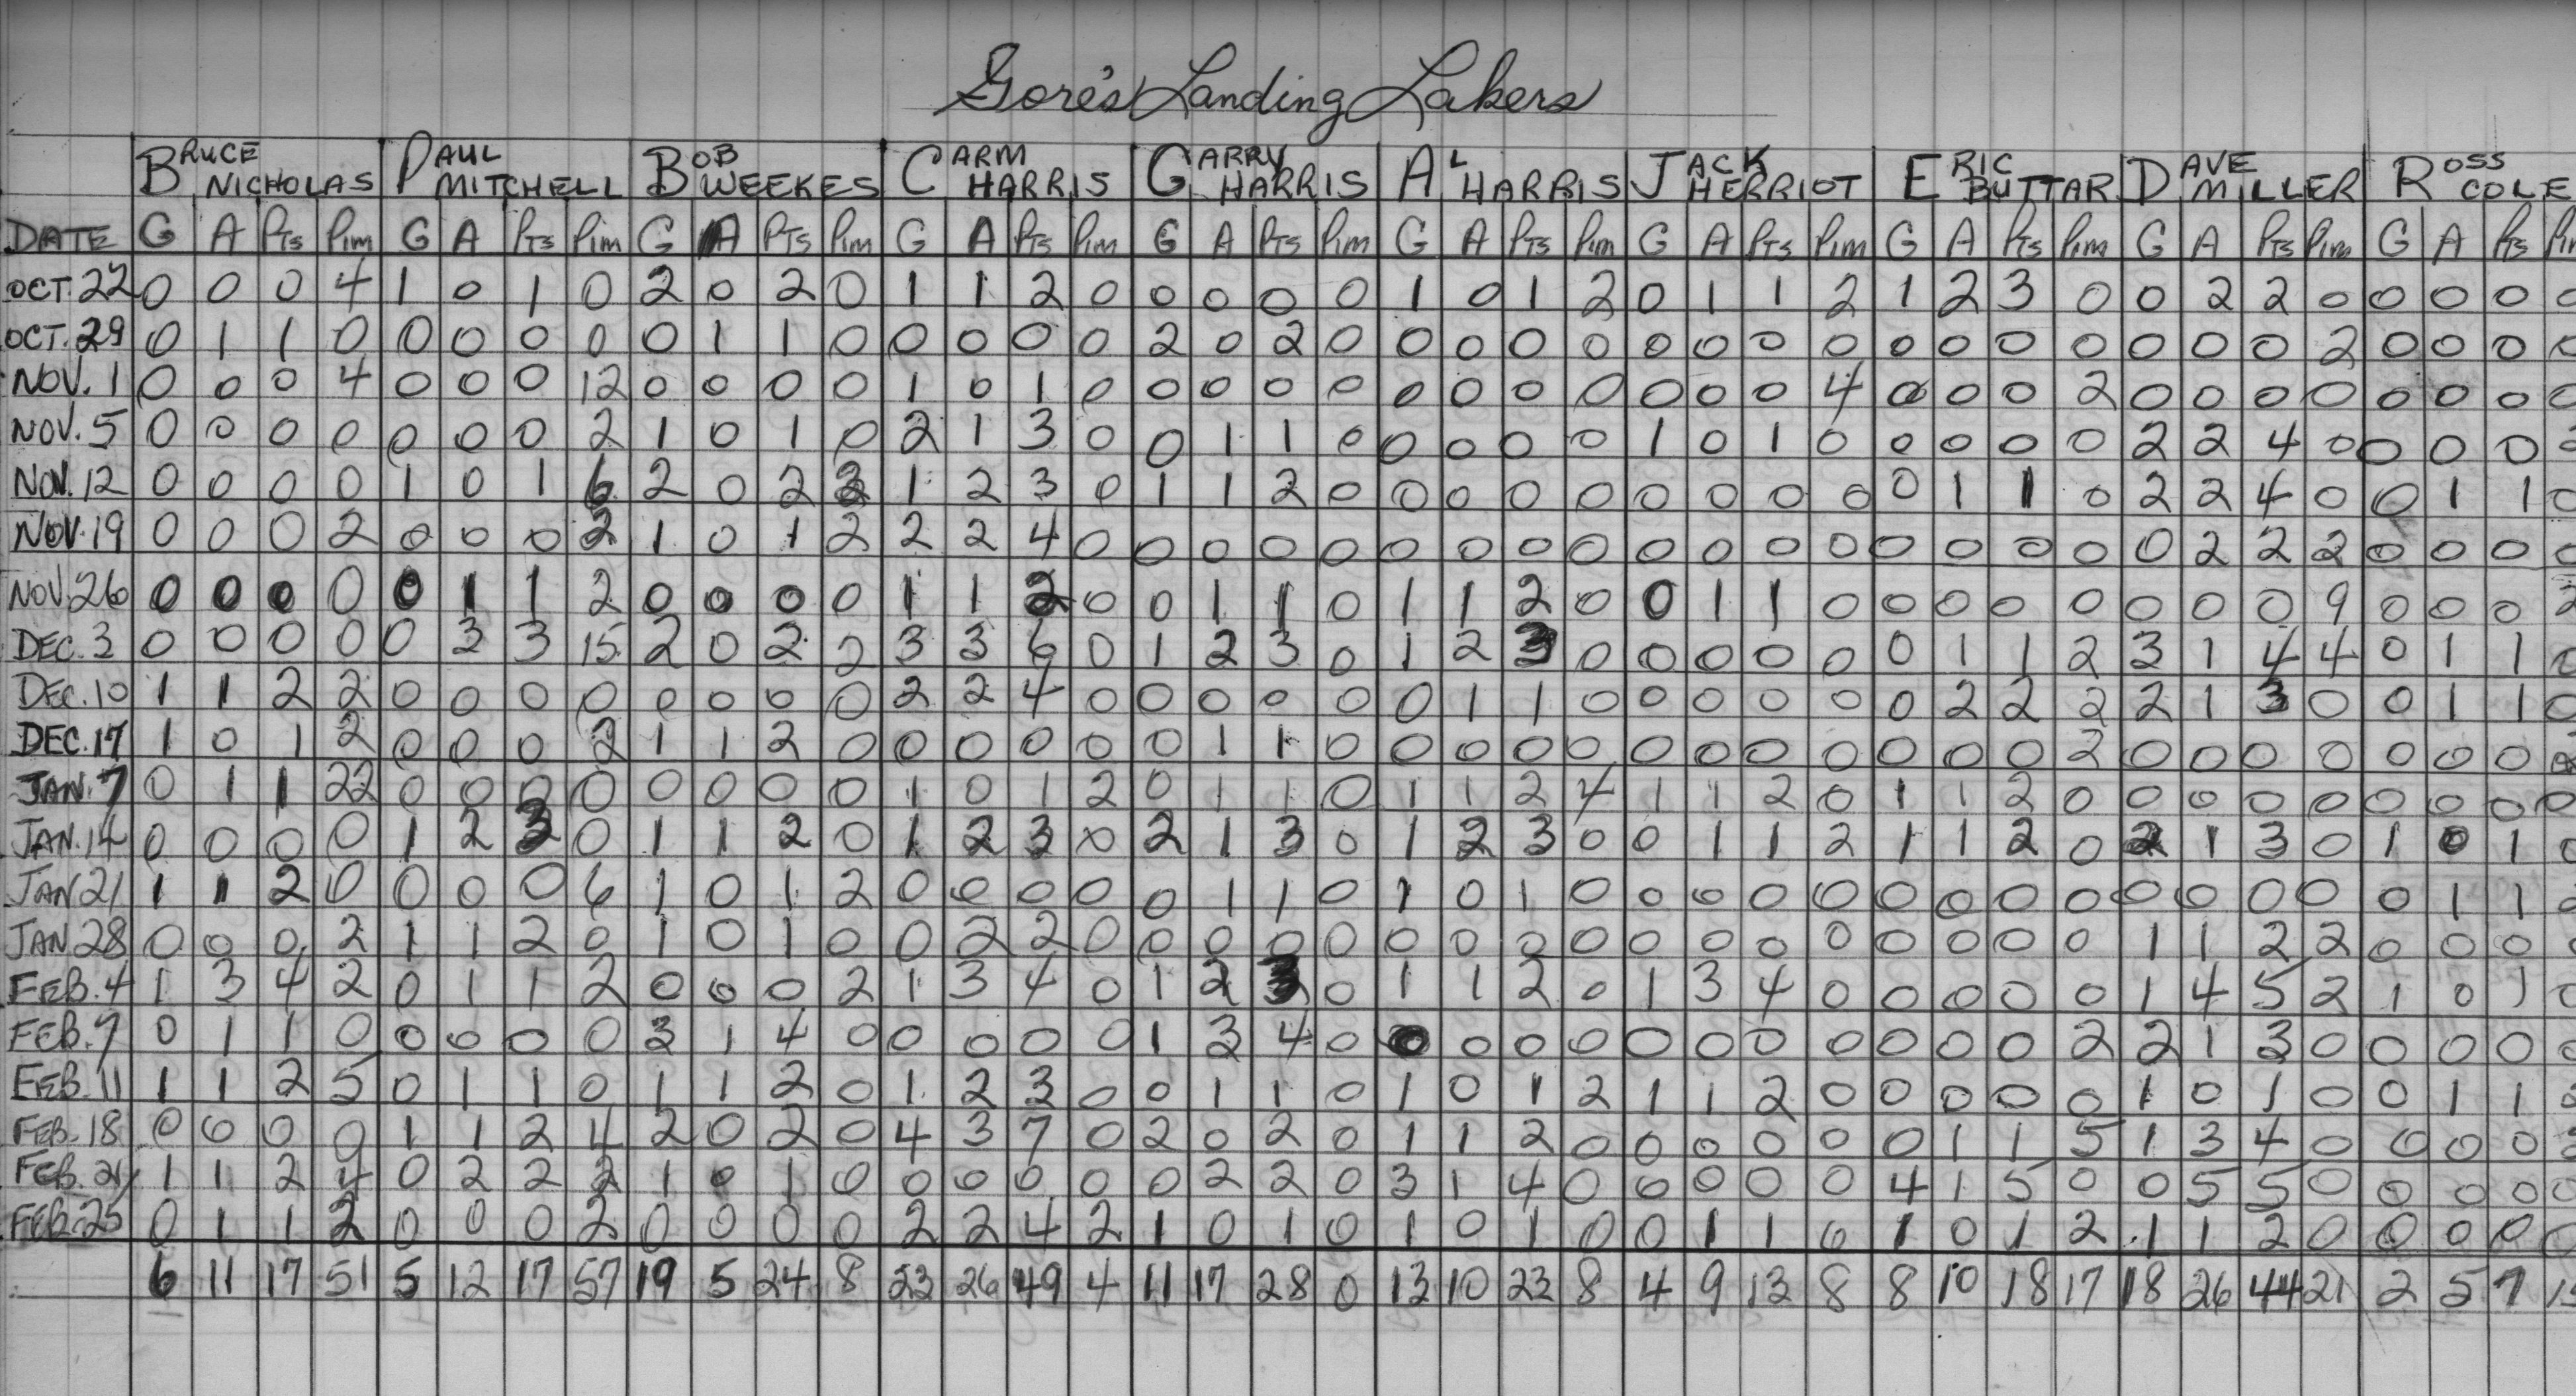 Gore's Landing Lakers
BRUCE NICHOLAS PAUL MITCHELL BOB WEEKES CARM HARRIS GARRY HARRIS AL HARRIS JACK HERRIOT ERIC BUTTAR DAVE MILLER ROSS COLE
DATE G A Pts Pim G A Pts Pim G A Pts Pim G A Pts Pim G A Pts Pim G A Pts Pim G A Pts Pim G A Pts Pim G A Pts Pim G A Pts
OCT. 22 0 0 0 4 1 0 1 0 2 0 2 0 1 1 2 0 0 0 0 0 1 0 1 2 0 1 1 2 1 2 3 0 0 2 2 0 0 0 0
OCT. 29 0 1 1 0 0 0 0 0 0 1 1 0 0 0 0 0 2 0 2 0 0 0 0 0 0 0 0 0 0 0 0 0 0 0 0 2 0 0 0
NOV. 1 0 0 0 4 0 0 0 12 0 0 0 0 1 0 1 0 0 0 0 0 0 0 0 0 0 0 0 4 0 0 0 2 0 0 0 0 0 0 0
NOV. 5 0 0 0 0 0 0 0 2 1 0 1 0 2 1 3 0 0 1 1 0 0 0 0 0 1 0 1 0 0 0 0 0 2 2 4 0 0 0 0
NOV. 12 0 0 0 0 1 0 1 6 2 0 2 1 2 3 0 1 1 2 0 0 0 0 0 0 0 0 0 0 1 1 0 2 2 4 0 0 1 1
NOV. 19 0 0 0 2 0 0 0 2 1 0 1 2 2 2 4 0 0 0 0 0 0 0 0 0 0 0 0 0 0 0 0 0 0 2 2 2 0 0 0
NOV. 26 0 0 0 0 0 1 1 2 0 0 0 0 1 1 2 0 0 1 1 0 1 1 2 0 0 1 1 0 0 0 0 0 0 0 0 9 0 0 0
DEC. 3 0 0 0 0 0 3 3 15 2 0 2 2 3 3 6 0 1 2 3 0 1 2 3 0 0 0 0 0 0 1 1 2 3 1 4 4 0 1 1
DEC. 10 1 1 2 2 0 0 0 0 0 0 0 0 2 2 4 0 0 0 0 0 0 1 1 0 0 0 0 0 0 2 2 2 2 1 3 0 0 1 1
DEC. 17 1 0 1 2 0 0 0 2 1 1 2 0 0 0 0 0 0 1 1 0 0 0 0 0 0 0 0 0 0 0 0 2 0 0 0 0 0 0 0
JAN. 7 0 1 1 22 0 0 0 0 0 0 0 0 1 0 1 2 0 1 1 0 1 1 2 4 1 1 2 0 1 1 2 0 0 0 0 0 0 0 0
JAN. 14 0 0 0 0 1 2 3 0 1 1 2 0 1 2 3 0 2 1 3 0 1 2 3 0 0 1 1 2 1 1 2 0 2 1 3 0 1 0 1
JAN 21 1 1 2 0 0 0 0 6 1 0 1 2 0 0 0 0 0 1 1 0 1 0 1 0 0 0 0 0 0 0 0 0 0 0 0 0 0 1 1
JAN 28 0 0 0 2 1 1 2 0 1 0 1 0 0 2 2 0 0 0 0 0 0 0 0 0 0 0 0 0 0 0 0 0 1 1 2 2 0 0 0
FEB. 4 1 3 4 2 0 1 1 2 0 0 0 2 1 3 4 0 1 2 3 0 1 1 2 0 1 3 4 0 0 0 0 0 1 4 5 2 1 0 1
FEB. 7 0 1 1 0 0 0 0 0 3 1 4 0 0 0 0 0 1 3 4 0 0 0 0 0 0 0 0 0 0 0 0 2 2 1 3 0 0 0 0
FEB. 11 1 1 2 5 0 1 1 0 1 1 2 0 1 2 3 0 0 1 1 0 1 0 1 2 1 1 2 0 0 0 0 0 1 0 1 0 0 1 1
FEB. 18 0 0 0 0 1 1 2 4 2 0 2 0 4 3 7 0 2 0 2 0 1 1 2 0 0 0 0 0 0 1 1 5 1 3 4 0 0 0 0
FEB. 21 1 1 2 4 0 2 2 2 1 0 1 0 0 0 0 0 0 2 2 0 3 1 4 0 0 0 0 0 4 1 5 0 0 5 5 0 0 0 0
FEB. 25 0 1 1 2 0 0 0 2 0 0 0 0 2 2 4 2 1 0 1 0 1 0 1 0 0 1 1 0 1 0 1 2 1 1 2 0 0 0 0
6 11 17 51 5 12 17 57 19 5 24 8 23 26 49 4 11 17 28 0 13 10 23 8 4 9 13 8 8 10 18 17 18 26 44 21 2 5 7